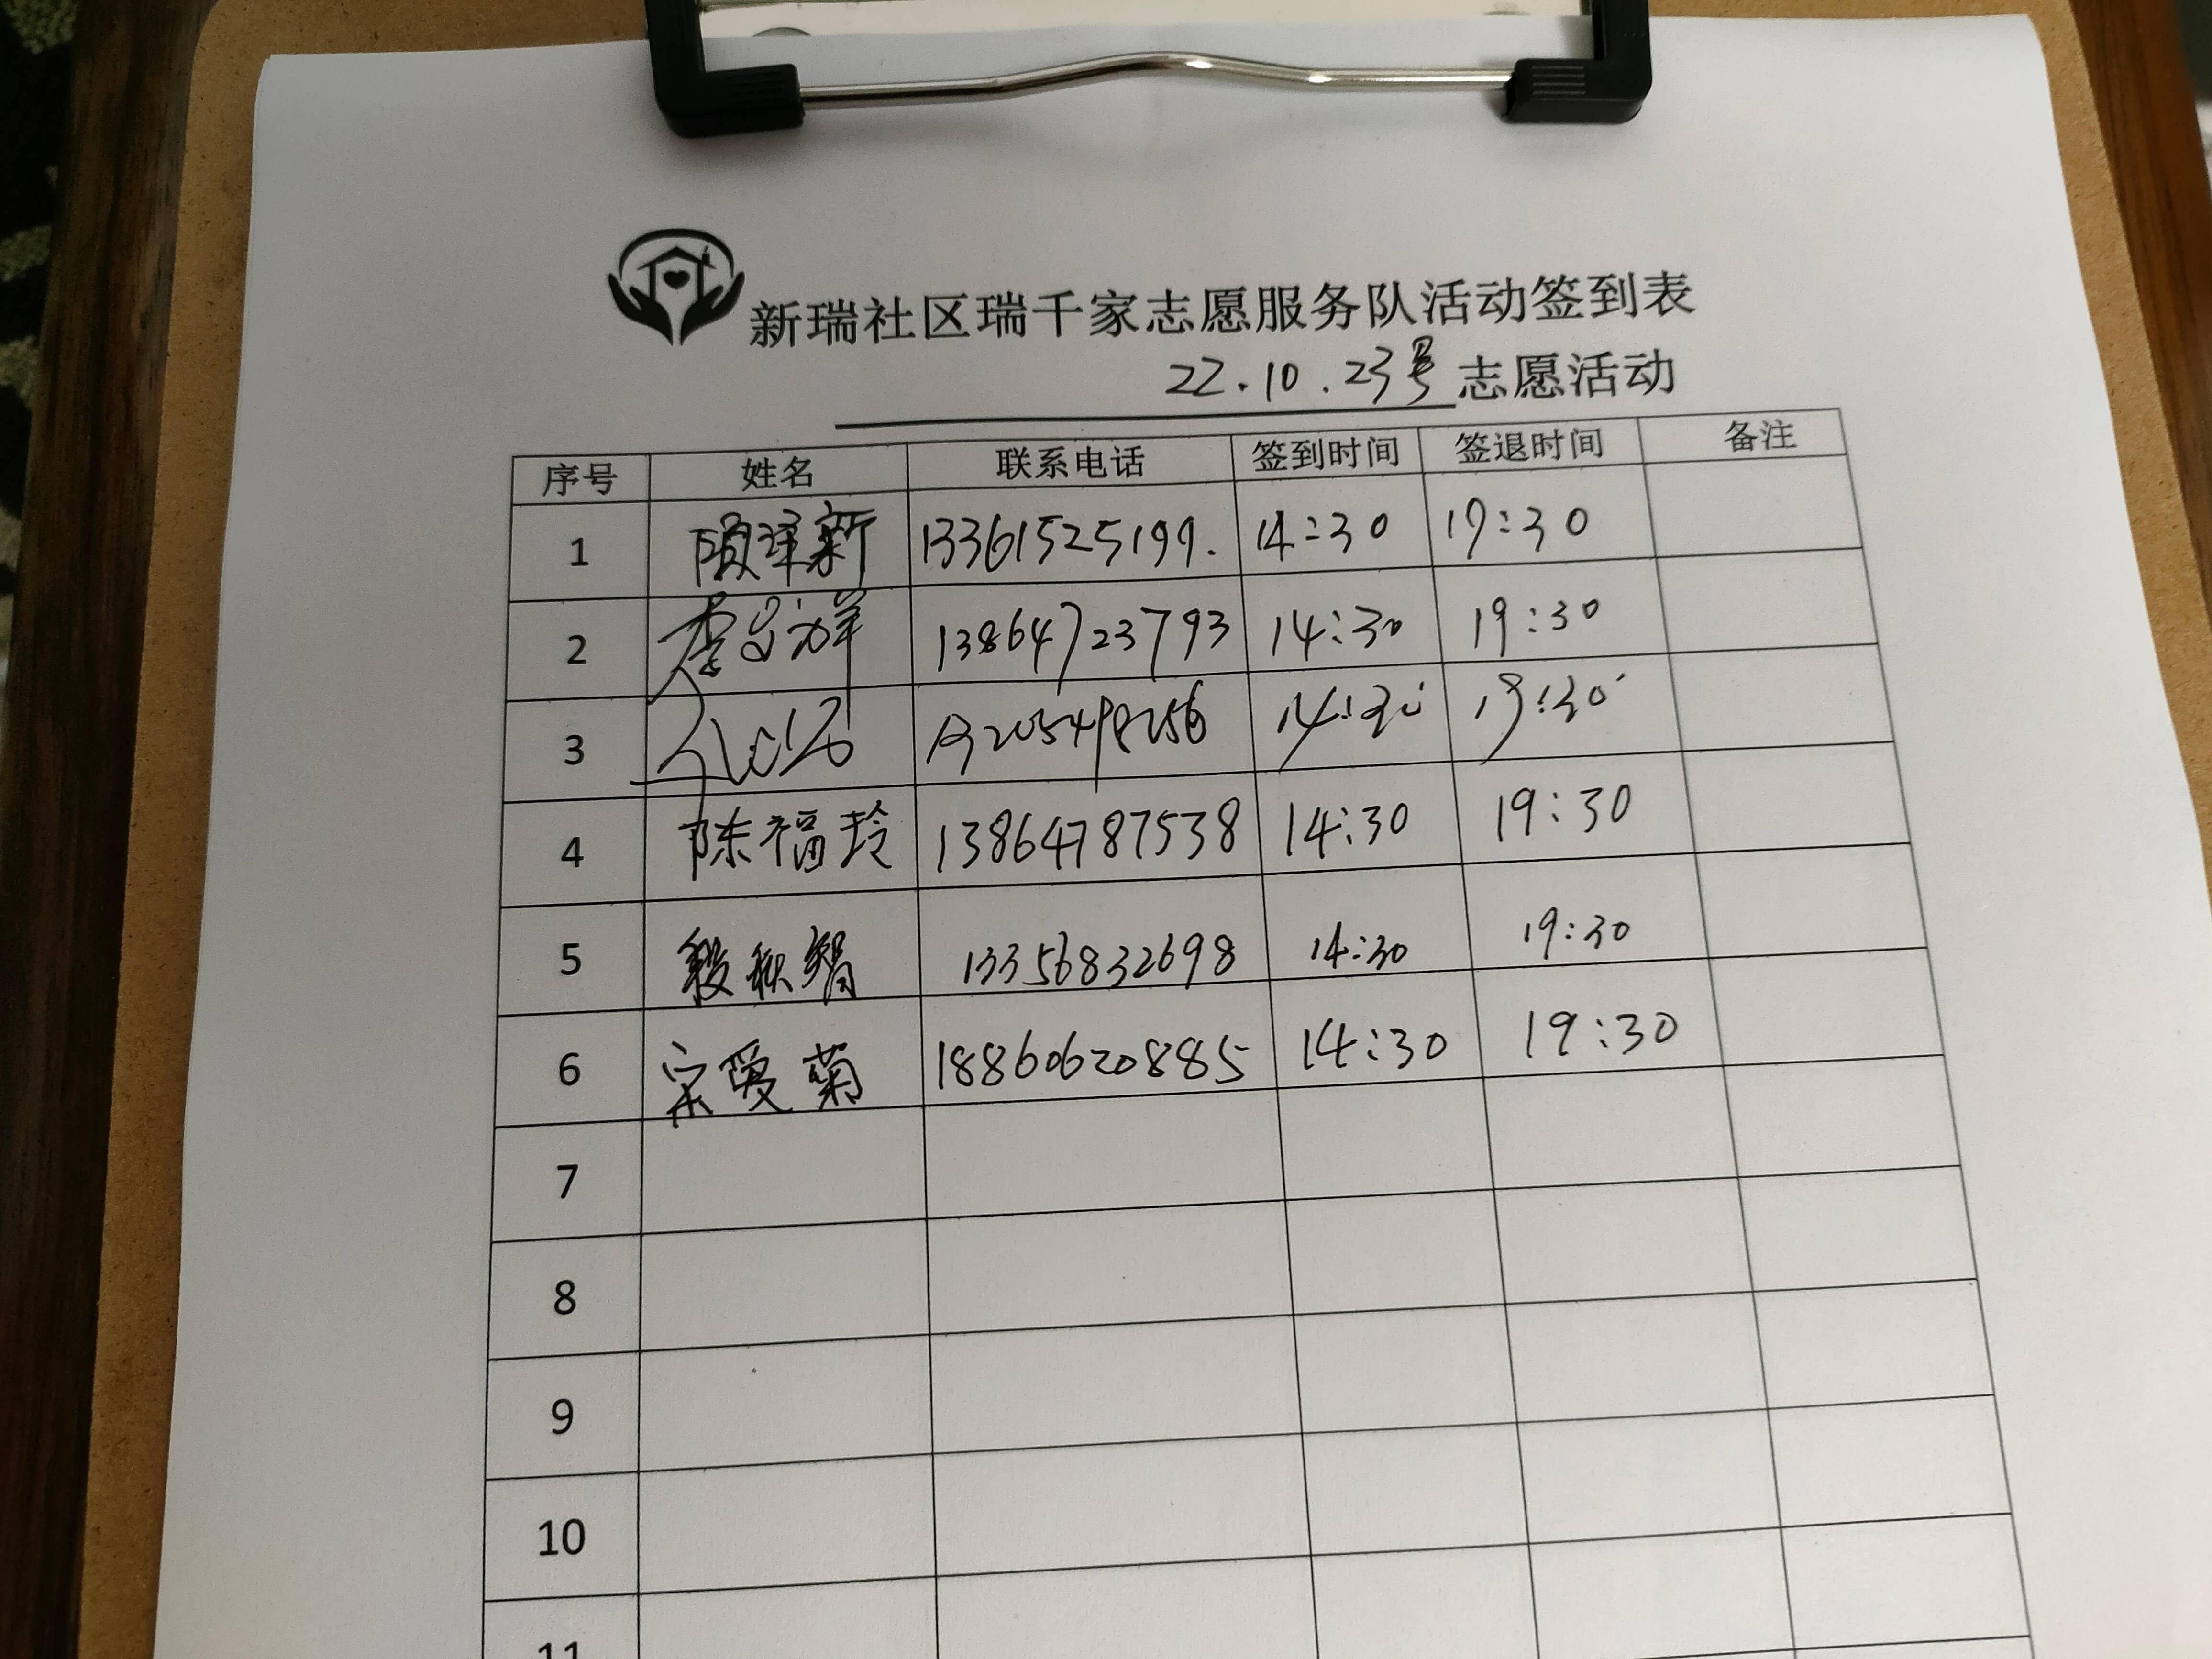 新瑞社区瑞千家志愿服务队活动签到表
22.10.23号 志愿活动
序号 姓名 联系电话 签到时间 签退时间 备注
1 顾泽新 13361525199. 14:30 19:30
2 13864723793 14:30 19:30
3 14:30 19:30
4 陈福玲 13864787538 14:30 19:30
5 殷秋娟 13356832698 14:30 19:30
6 宋爱菊 18860620885 14:30 19:30
7
8
9
10
11